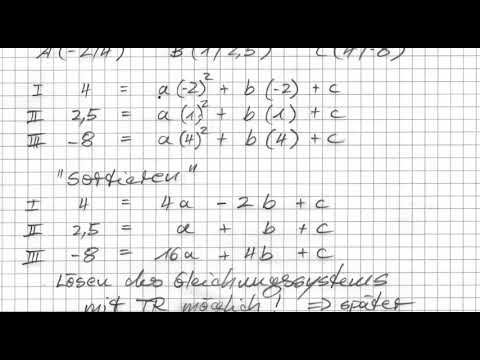 A(-2/4) B(1/2,5) C(4/-8)
I 4 = a(-2)² + b(-2) + c
II 2,5 = a(1)² + b(1) + c
III -8 = a(4)² + b(4) + c
"Sortieren"
I 4 = 4a - 2b + c
II 2,5 = a + b + c
III -8 = 16a + 4b + c
Lösen des Gleichungssystems
mit TR möglich! ⇒ später